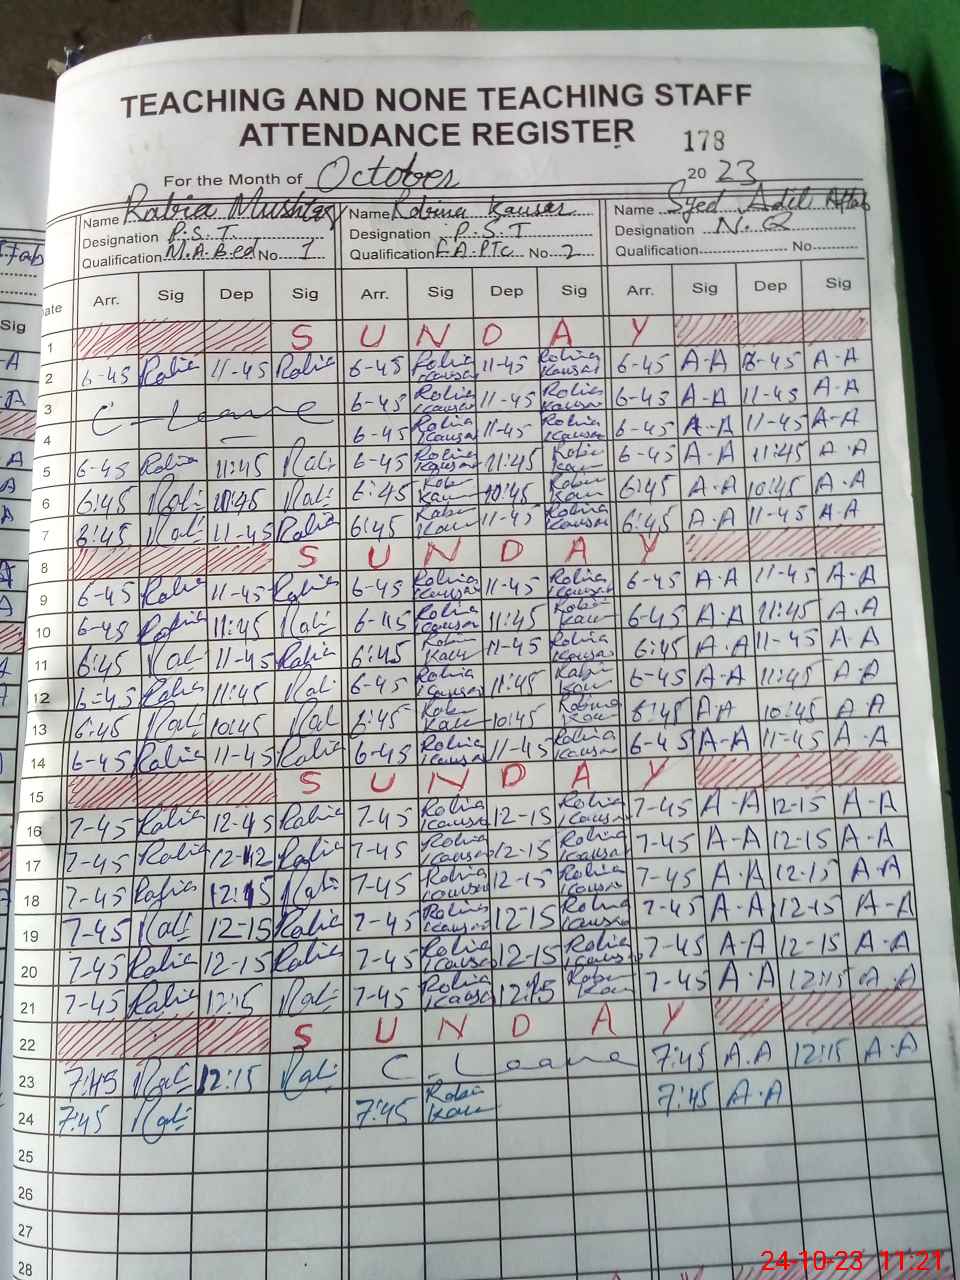 TEACHING AND NONE TEACHING STAFF
ATTENDANCE REGISTER 178
For the Month of October 2023
Name Rabia Mushtaq Name Robina Kausar Name Syed Adil Aftab
Designation P.S.T. Designation P.S.T Designation N.Q
Qualification M.A.B.ed No 1 Qualification F.A.PTC No 2 Qualification No
Date Arr. Sig Dep Sig Arr. Sig Dep Sig Arr. Sig Dep Sig
1 S U N D A Y
2 6-45 Rabia 11-45 Rabia 6-45 Robina Kausar 11-45 Robina Kausar 6-45 A-A 11-45 A-A
3 C-Leave 6-45 Robina Kausar 11-45 Robina Kausar 6-45 A-A 11-45 A-A
4 6-45 Robina Kausar 11-45 Robina Kausar 6-45 A-A 11-45 A-A
5 6-45 Rabia 11:45 Rabi 6-45 Robina Kausar 11:45 Robin Kau 6-45 A-A 11:45 A-A
6 6:45 Rabi 10:45 Rabi 6:45 Robin Kau 10:45 Robin Kau 6:45 A-A 10:45 A-A
7 6:45 Rabi 11-45 Rabia 6:45 Robin Kau 11-45 Robina Kausar 6:45 A-A 11-45 A-A
8 S U N D A Y
9 6-45 Rabia 11-45 Rabia 6-45 Robina Kausar 11-45 Robina Kausar 6-45 A-A 11-45 A-A
10 6-45 Rabia 11:45 Rabi 6-45 Robina Kausar 11:45 Robin Kau 6-45 A-A 11:45 A.A
11 6:45 Rabi 11-45 Rabia 6:45 Robin Kau 11-45 Robina Kausar 6:45 A.A 11-45 A-A
12 6-45 Rabia 11:45 Rabi 6-45 Robina Kausar 11:45 Robin Kau 6-45 A-A 11:45 A-A
13 6:45 Rabi 10:45 Rabi 6:45 Robin Kau 10:45 Robina Kau 6:45 A-A 10:45 A.A
14 6-45 Rabia 11-45 Rabia 6-45 Robina Kausar 11-45 Robina Kausar 6-45 A-A 11-45 A-A
15 S U N D A Y
16 7-45 Rabia 12-45 Rabia 7-45 Robina Kausar 12-15 Robina Kausar 7-45 A-A 12-15 A-A
17 7-45 Rabia 12-12 Rabia 7-45 Robina Kausar 12-15 Robina Kausar 7-45 A-A 12-15 A-A
18 7-45 Rabia 12:15 Rabi 7-45 Robina Kausar 12-15 Robina Kausar 7-45 A-A 12-15 A-A
19 7-45 Rabi 12-15 Rabia 7-45 Robina Kausar 12-15 Robina Kausar 7-45 A-A 12-15 A-A
20 7-45 Rabia 12-15 Rabia 7-45 Robina Kausar 12-15 Robina Kausar 7-45 A-A 12-15 A-A
21 7-45 Rabia 12:15 Rabi 7-45 Robina Kausar 12:15 Robin Kau 7-45 A.A 12:15 A.A
22 S U N D A Y
23 7:45 Rabi 12:15 Rabi C-Leave 7:45 A.A 12:15 A.A
24 7:45 Rabi 7:45 Robin Kau 7:45 A.A
25
26
27
28
24-10-23 11:21